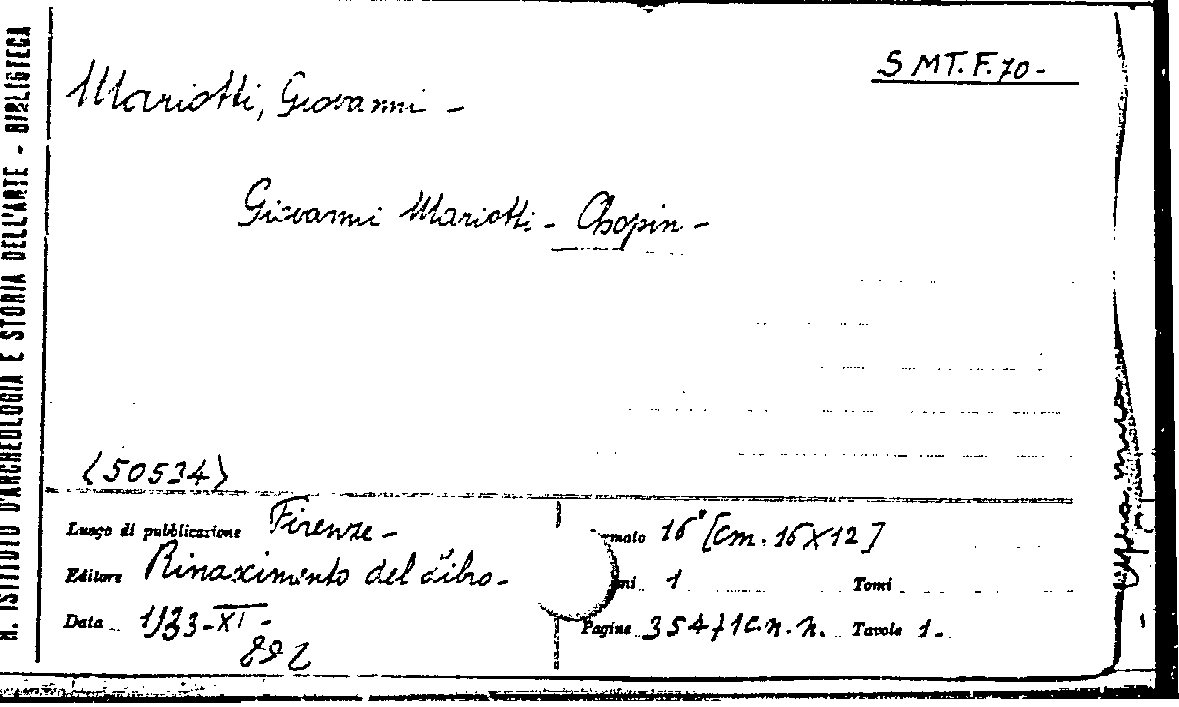 R. ISTITUTO D'ARCHEOLOGIA E STORIA DELL'ARTE - BIBLIOTECA
S MT. F. 70 -
Mariotti, Giovanni -
Giovanni Mariotti - Chopin -
(50534)
Luogo di pubblicazione Firenze -
Editore Rinascimento del Libro -
Data 1933 - XI -
892
rmato 16° [cm. 16X12]
mi 1 Tomi
Pagine 354+1c.n.n. Tavole 1 -